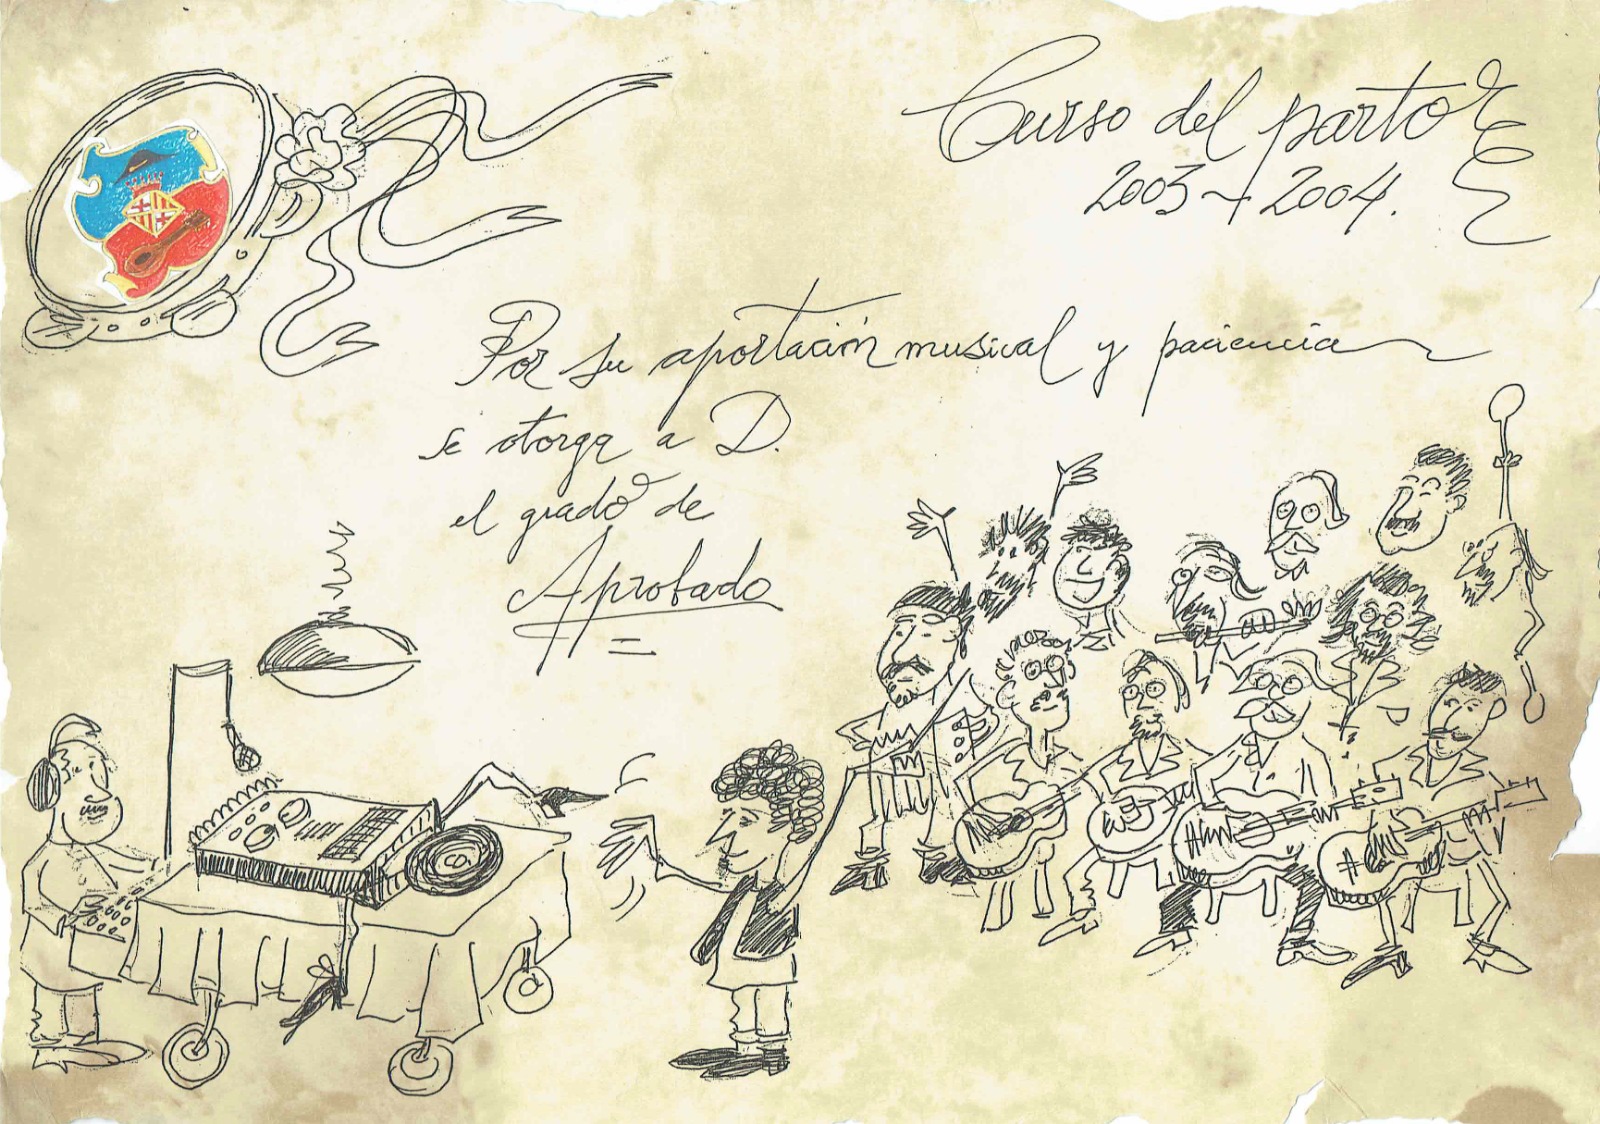 Curso del parto
2003-2004.
Por su aportación musical y paciencia
se otorga a D.
el grado de
Aprobado